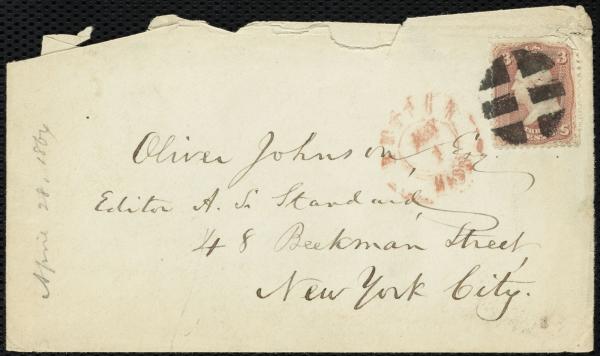 Oliver Johnson, Esq.
Editor A. S. Standard,
48 Beekman Street,
New York City.
April 28, 1864
3 U.S. 3
MASS